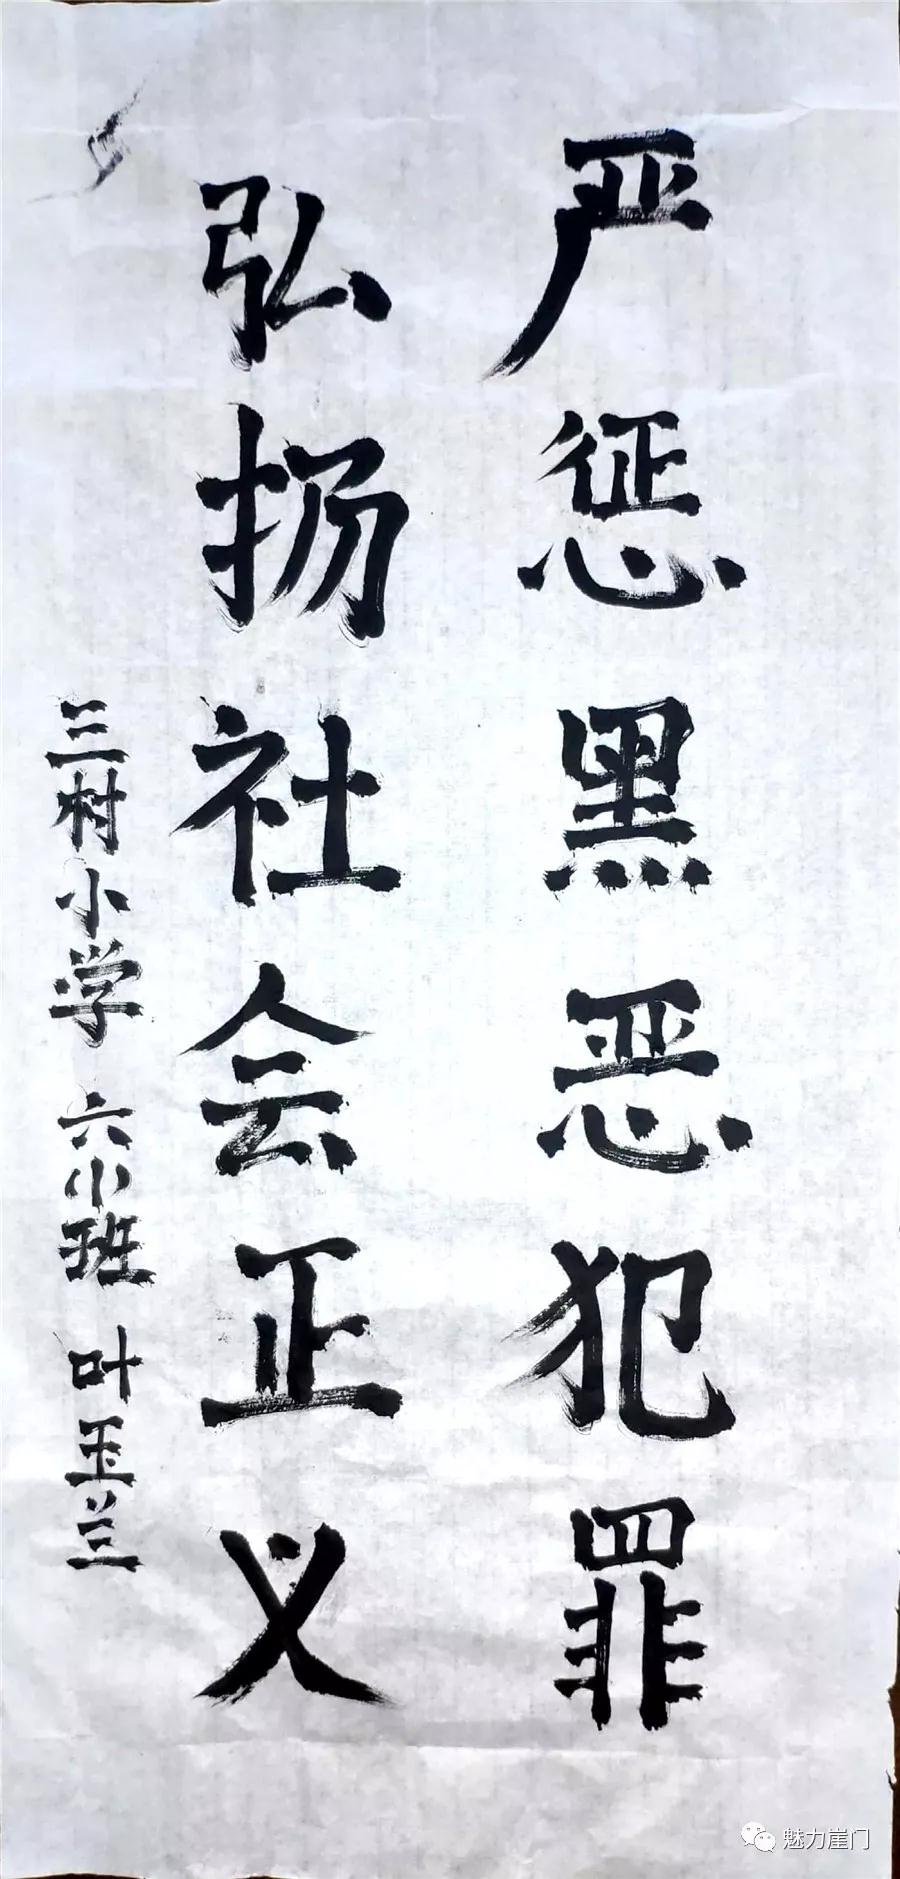 严惩黑恶犯罪
弘扬社会正义
三村小学 六小班 叶玉兰
魅力崖门